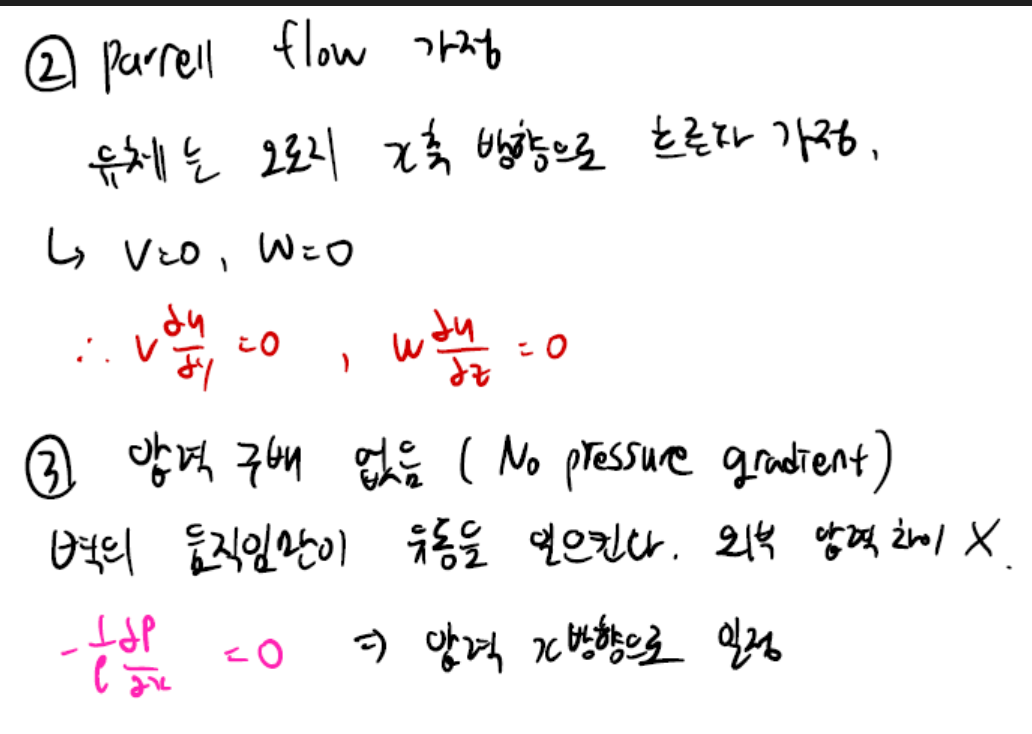 ② Parrell flow 가정
유체는 오로지 x축 방향으로 흐른다 가정.
↳ V=0, W=0
∴ v ∂u/∂y =0 , w ∂u/∂z =0
③ 압력 구배 없음 ( No pressure gradient)
벽의 움직임만이 유동을 일으킨다. 외부 압력 차이 X.
-1/ρ ∂P/∂x =0 ⇒ 압력 x방향으로 일정